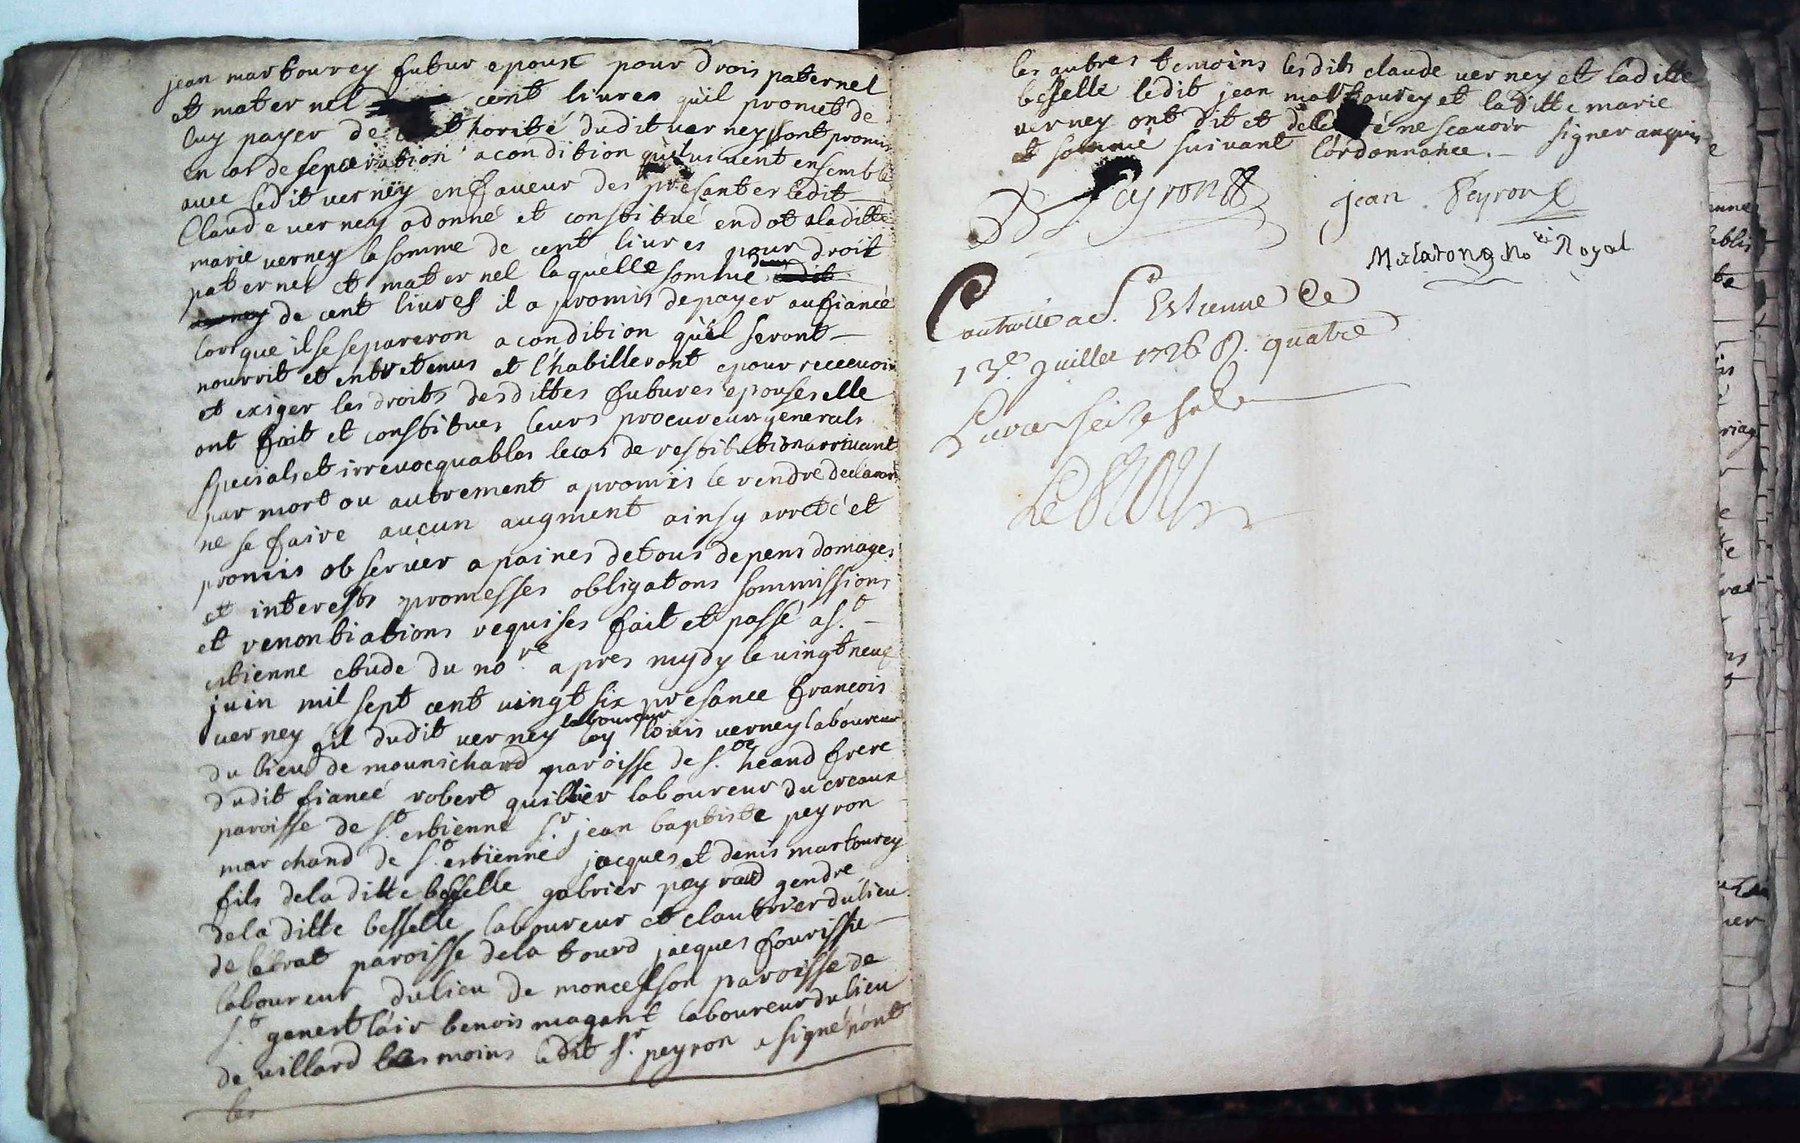 jean martourey futur epoux pour drois paternel
et maternel cent livres qu'il promet de
luy payer de horité dudit verney sont promis
en cas de separation a condition qu'il vivent ensemble
avec ledit verney en faveur des presantes ledit
Claude verney a donné et constitué en dot a laditte
marie verney la somme de cent livres pour droit
paternel et maternel laquelle somme
de cent livres il a promis de payer au fiancé
lorsque il se separeron a condition qu'il seront
nourrit et entretenus et l'habilleront epour recevoir
et exiger les droits desdittes futures epouses elle
ont fait et constitues leurs procureurs generals
specials et irrevocquables le cas de restitution arrivant
par mort ou autrement a promis le rendre declarant
ne se faire aucun augment ainsy arreté et
promis observer a paines de tous depens domages
et interests promesses obligatons sommissions
et renontiations requises fait et passé a s.t
estienne etude du no.re apres mydy le vingt neuf
juin mil sept cent vingt six presance francois
verney fil dudit verney laboureur louis verney laboureur
du lieu de mounichard paroisse de s.t heand frere
dudit fiancé robert quillier laboureur du creaux
paroisse de s.t estienne s.r jean baptiste peyron
marchand de s.t estienne jacques et denis martourey
fils de la ditte besselle gabriel peyrard gendre
de la ditte besselle laboureur et clautrier du lieu
de letrat paroisse de la tourd jacques fourissie
laboureur du lieu de moncelson paroisse de
s.t genest l'air benois magant laboureur du lieu
de villard temoins ledit s.r peyron a signé n'ont
les
les autres temoins lesdits claude verney et laditte
besselle ledit jean martourey et laditte marie
verney ont dit et ne scavoir signer
et sommé suivant l'ordonnance.
Peyron
Jean Peyron
No Royal
Controllé a S.t Estienne Le
13.e Juillet 1726 R. quatre
Livres seize sols